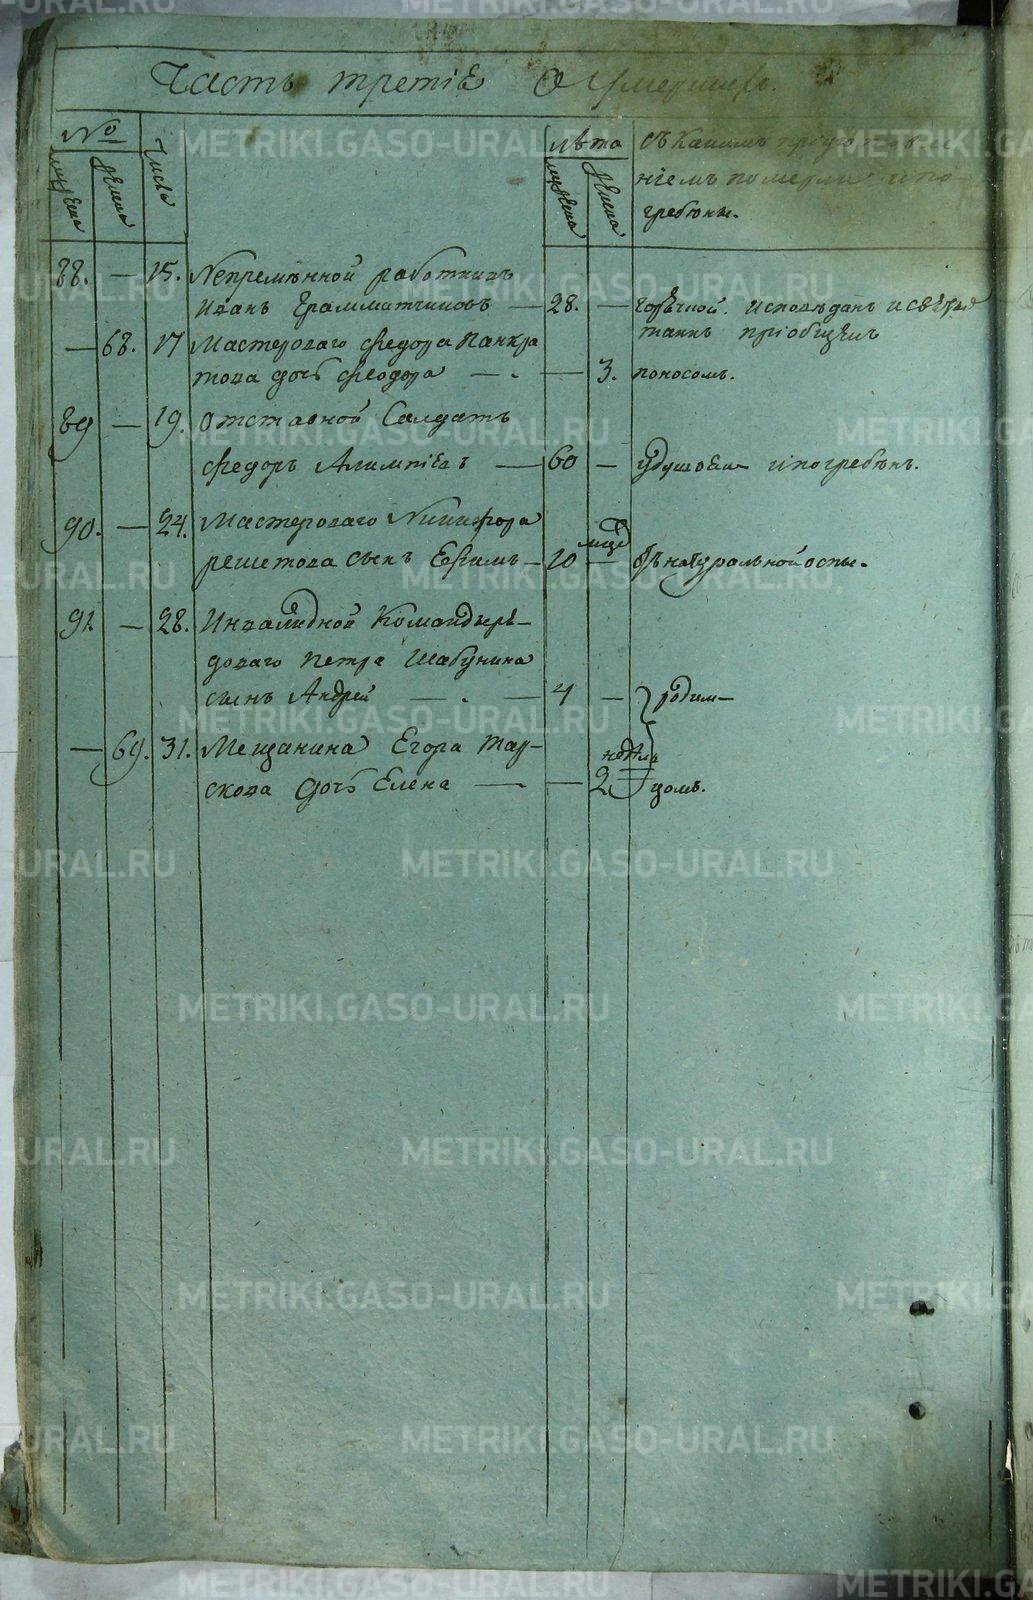 Часть третiѣ О Умершихъ.
№
мужеска
женска
числа
лѣта
мужеска
женска
съ какимъ
нiемъ померли и по-
гребены.
88. — 15. Непремѣнной работникъ
Иванъ Грамматчиковъ — 28. — горѣчкой. исповѣданъ и свят
таинъ прiобщенъ
— 68. 17 Мастероваго Федора Панкра
това дочь Феодора — . — 3. поносомъ.
89 — 19. Отставной Салдатъ
Федоръ Алимпiевъ — 60 — удушьем и погребѣнъ.
90. — 24. Мастероваго Никифора
решетова сынъ Ефимъ — 10 — натуральной оспы.
91. — 28. Инвалидной Команды
доваго Петра Шабунина
сынъ Андрей — . — 4 — родим—
— 69. 31. Мещанина Егора
скова дочь Елена — — 2 недѣль
цомъ.
METRIKI.GASO-URAL.RU